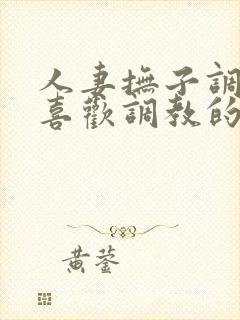 人妻撫子調
喜歡調教的
黄蓥